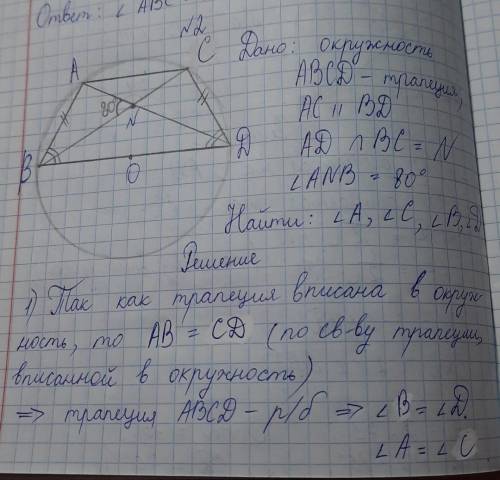 Ответ: ∠ ABC
N2
Дано: окружность
ABCD - трапеция,
AC || BD
AD ∩ BC = N
∠ANB = 80°
Найти: ∠A, ∠C, ∠B, ∠D
A
C
80°
N
B
D
O
Решение
1) Так как трапеция вписана в окруж-
ность, то AB = CD (по св-ву трапеции,
вписанной в окружность)
=> трапеция ABCD - р/б => ∠B = ∠D.
∠A = ∠C